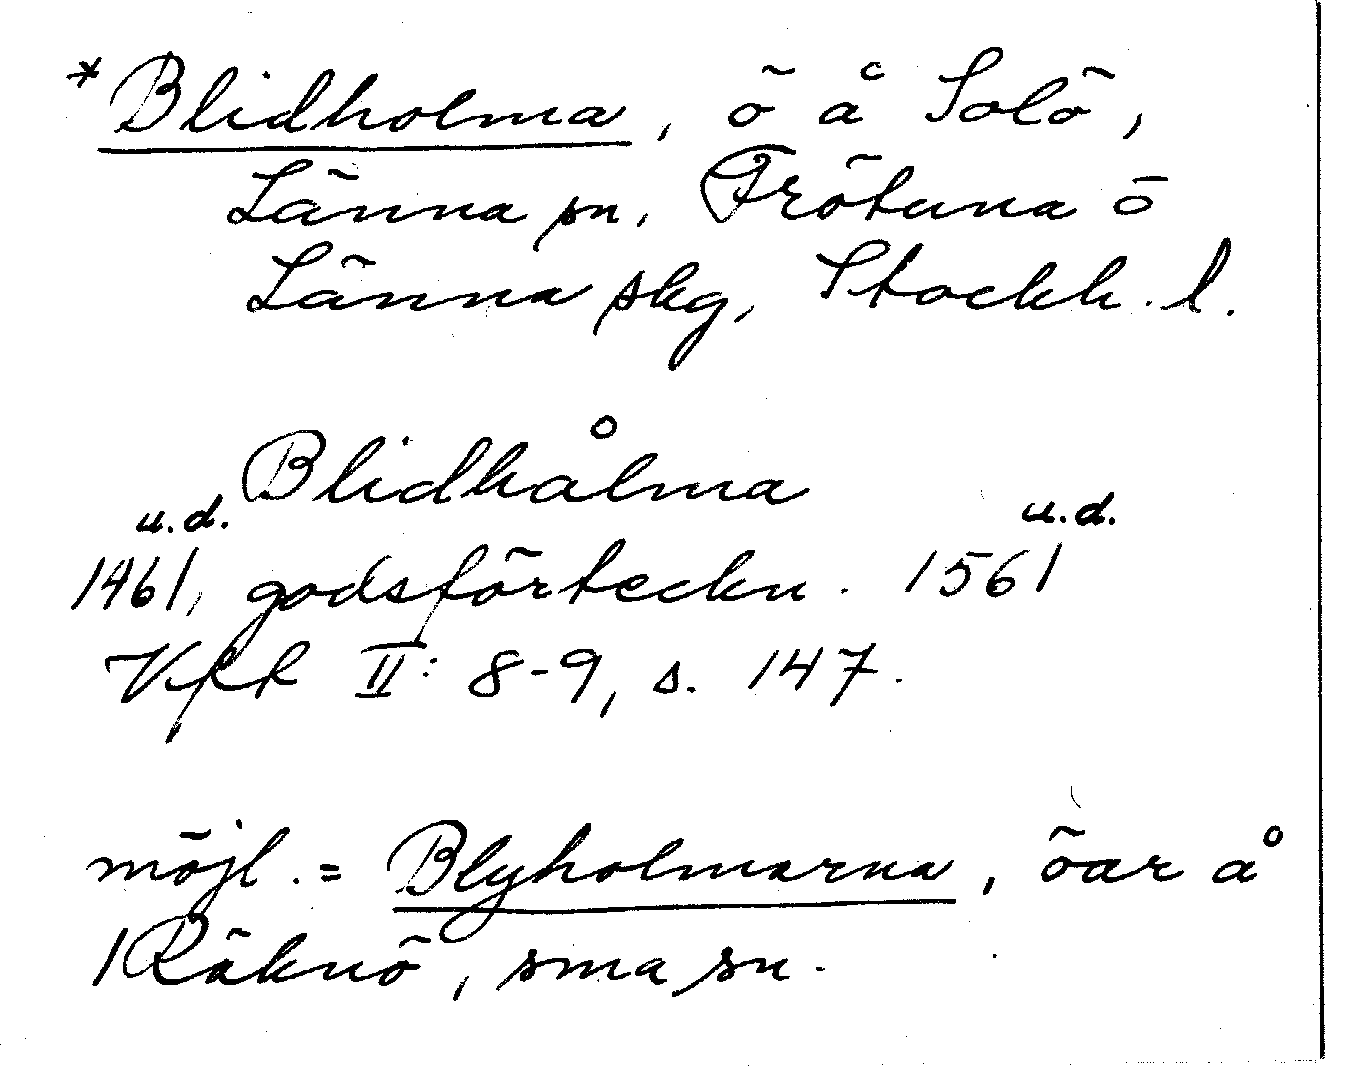 *Blidholma, ö å Solö,
Länna sn, Frötuna o
Länna skg, Stockh. l.
Blidhålma
u.d. u.d.
1461, godsförteckn. 1561
Vfrk II: 8-9, s. 147.
möjl. = Blyholmarna, öar å
Räknö, sma sn.